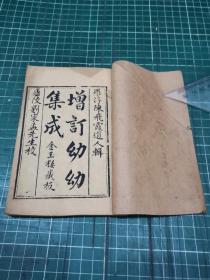 羅浮陳飛霞道人輯
增訂幼幼
集成
金玉樓藏板
廬陵劉宗孟先生校